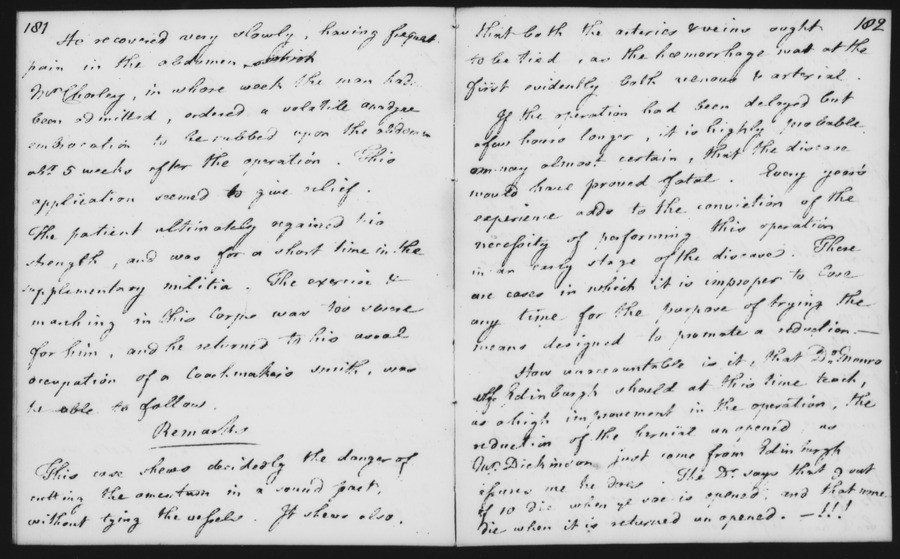 181
He recovered very slowly, having frequent
pain in the abdomen
Mr Chorley, in whose week the man had
been admitted, ordered a volatile
embrocation to be rubbed upon the abdomen
abt. 5 weeks after the operation. This
application seemed to give relief.
The patient ultimately regained his
strength, and was for a short time in the
supplementary militia. The exercise &
marching in this Corps was too severe
for him, and he returned to his usual
occupation of a Coachmaker's smith, was
able to follow.
Remarks
This case shews decidedly the danger of
cutting the omentum in a sound part,
without tying the vessels. It shews also,
182
that both the arteries & veins ought
to be tied, as the hœmorrhage was at the
first evidently both venous & arterial.
If the operation had been delayed but
a few hours longer, it is highly probable
nay almost certain, that the disease
would have proved fatal. Every year's
experience adds to the conviction of the
necessity of performing this operation
in an early stage of the disease. There
are cases in which it is improper to lose
any time for the purpose of trying the
means designed to promote a reduction.—
How unaccountable is it, that Dr. Munro
of Edinburgh should at this time teach,
as a high improvement in the operation, the
reduction of the hernial unopened, as
Mr. Dickinson just come from Edinburgh
assures me he does. The Dr. says that 9 out
of 10 die when ye sac is opened, and that none
die when it is returned unopened. — !!!